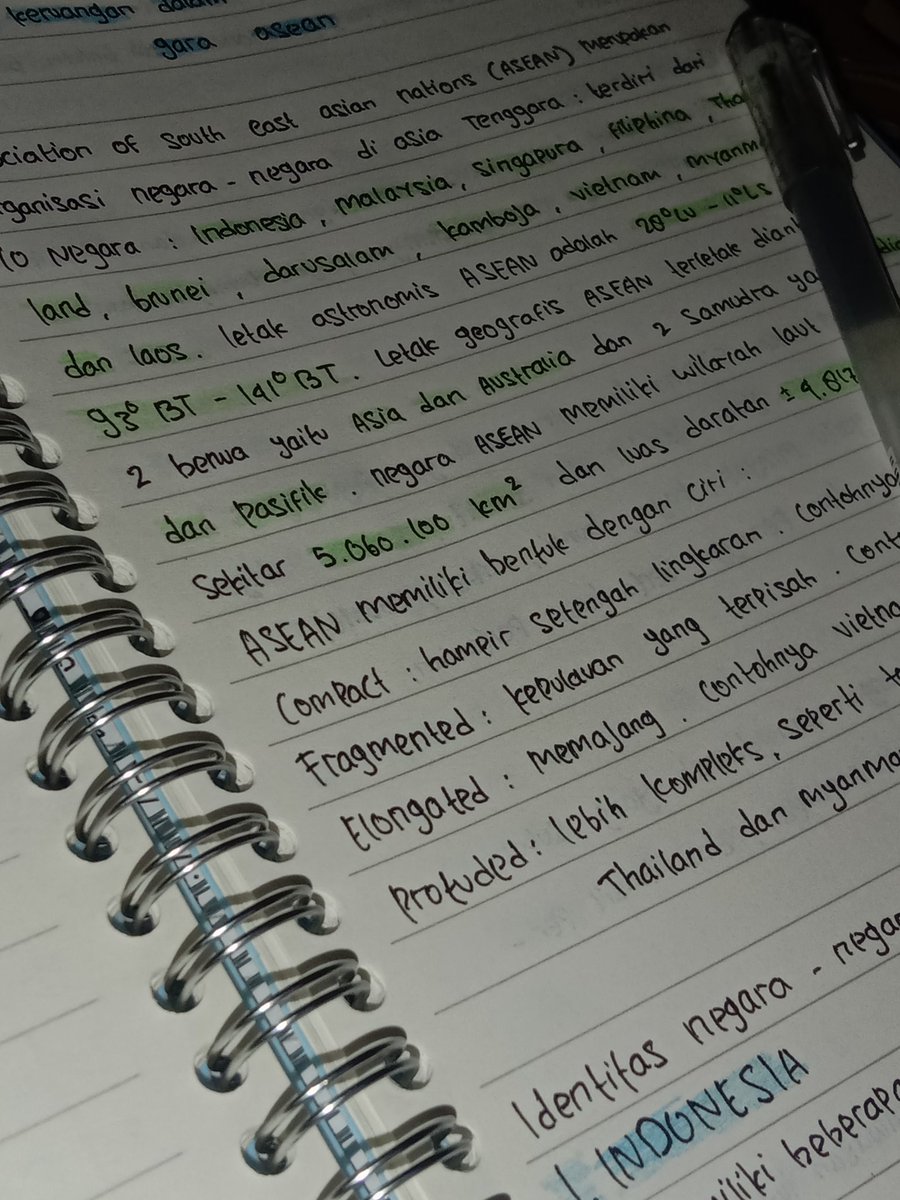 keruangan dalam
gara asean
ciation of south east asian nations (ASEAN) merupakan
rganisasi negara - negara di asia Tenggara : terdiri dari
10 Negara : Indonesia, malaysia, singapura, filiphina, Tha
land, brunei, darusalam, kamboja, vietnam, myanm
dan laos. letak astronomis ASEAN adalah 28° LU - 11° LS
93° BT - 141° BT. Letak geografis ASEAN terletak dian
2 benua yaitu Asia dan Australia dan 2 Samudra ya
dan Pasifik. negara ASEAN memiliki wilariah laut
Sekitar 5.060.100 km² dan luas daratan ± 4.817
ASEAN memiliki bentuk dengan ciri :
Compact : hampir setengah lingkaran. contohnya
Fragmented : kepulauan yang terpisah. Cont
Elongated : memajang. Contohnya vietna
Profuded : lebih kompleks, seperti t
Thailand dan myanma
Identitas negara - negar
1. INDONESIA
iliki beberapa